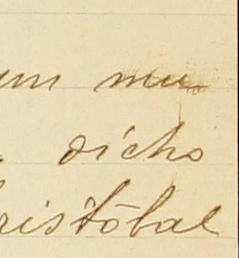 un mu
dicho
ristóbal